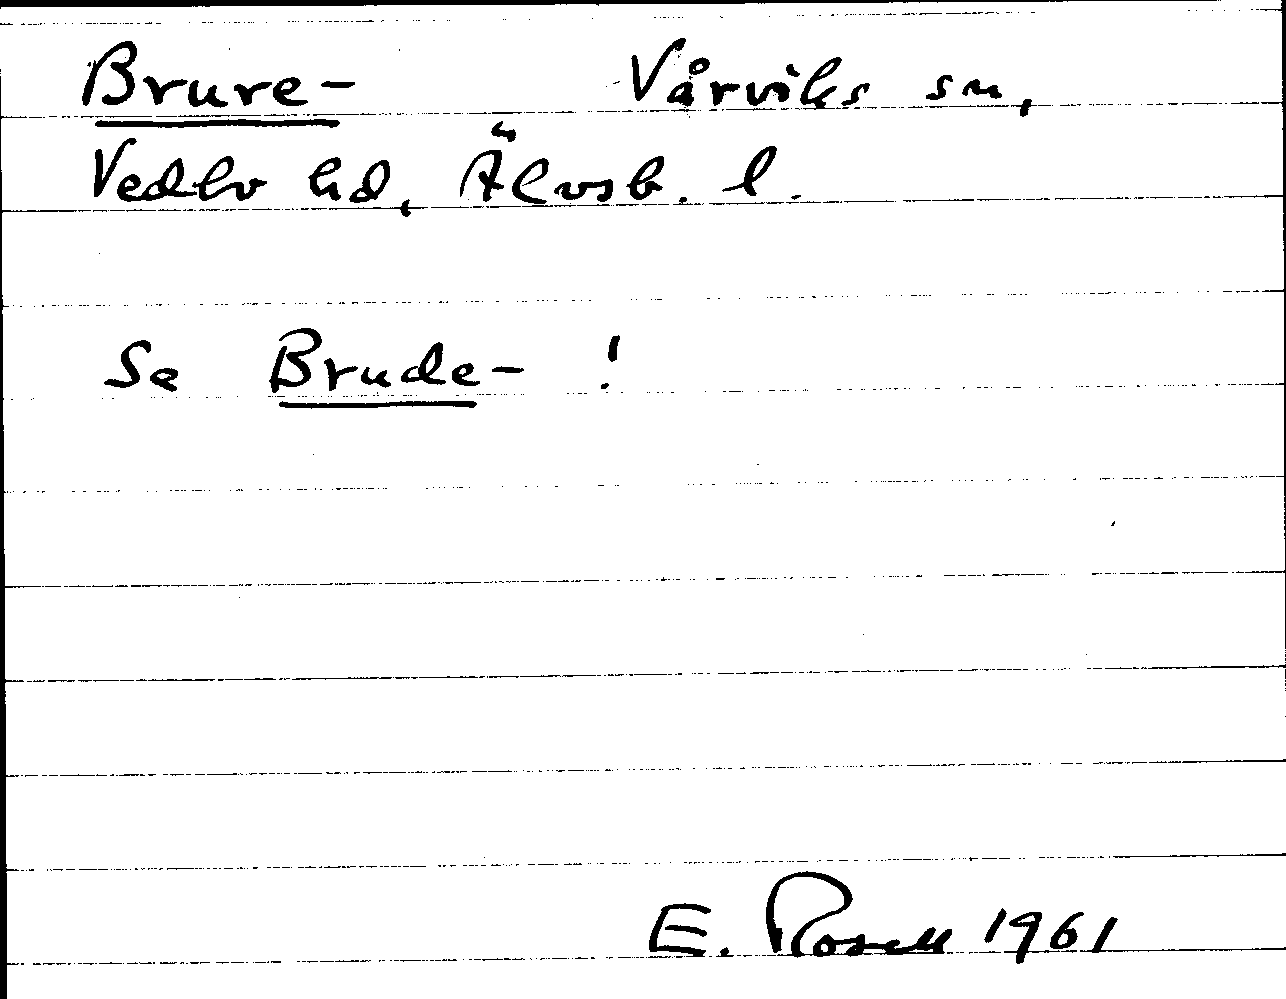 Brure- Vårviks sn,
Vedbo hd, Älvsb. l.
Se Brude- !
E. Rosell 1961